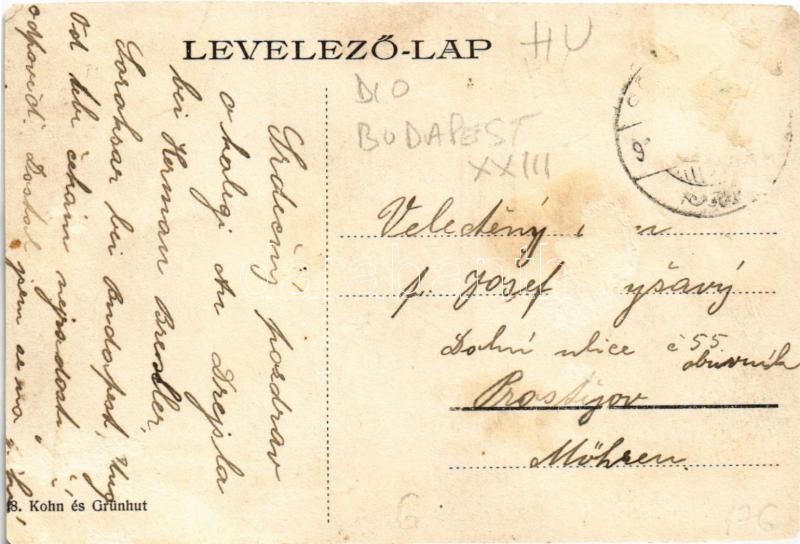 LEVELEZŐ-LAP
HU
DIO
BUDAPEST
XXIII
Srdečný pozdrav
o kolegi An Drejsla
bei Herman Bresler
Soroksar bei Budapest, Ung
Od tebi čekám nejradosti
odpověd. Dostal jsem
Veleděný
p. Jošef yšavý
Dolní ulice č 55
obuvník
Prostijov
Möhren
18. Kohn és Grünhut
G